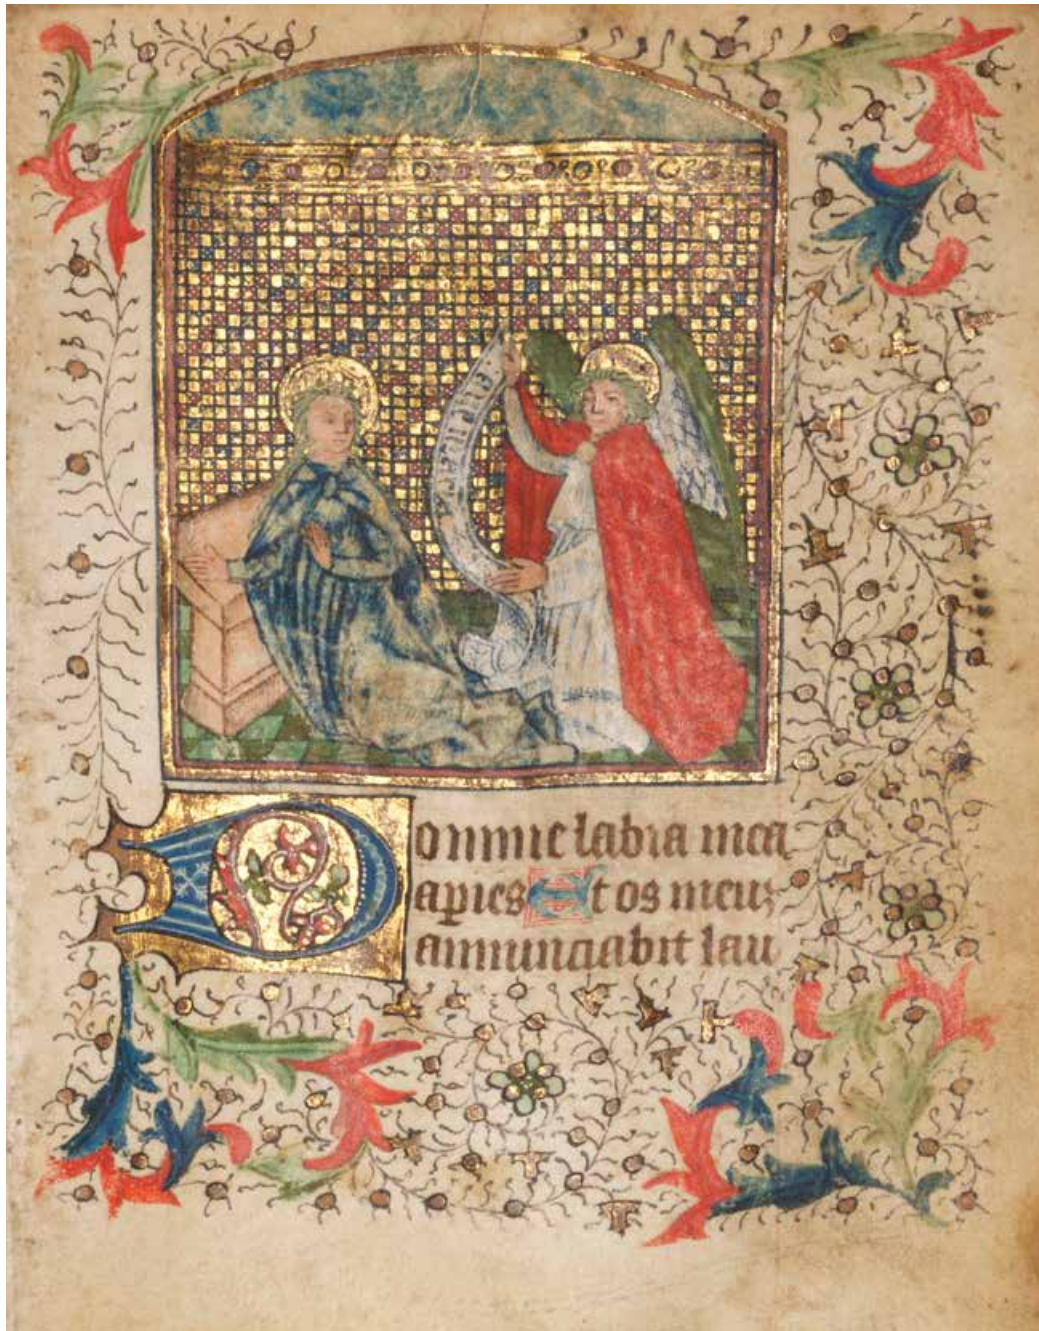 Domine labia mea
apies Et os meuz
annunciabit lau